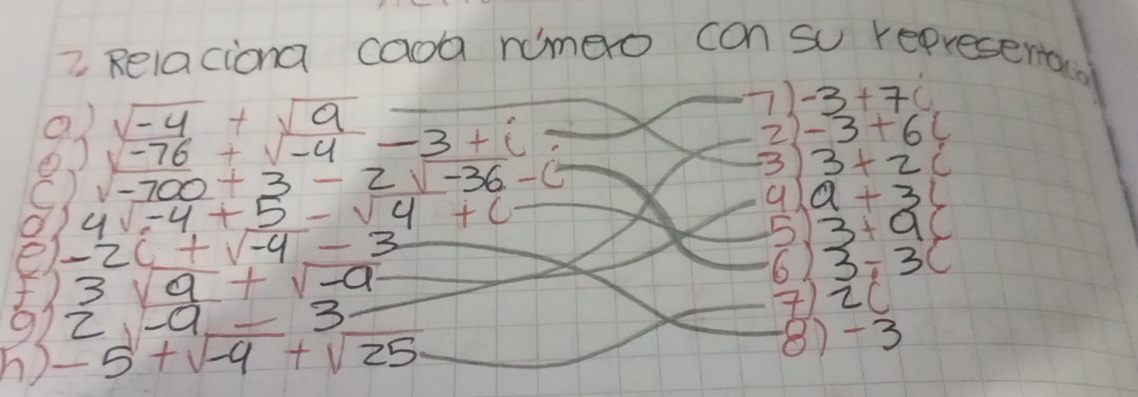 7. Relaciona cada número con su
a) √-4 + √9
b) √-76 + √-4 - 3 + i
c) √-700 + 3 - 2√-36 - i
d) 4√-4 + 5 - √4 + i
e) -2i + √-4 - 3
f) 3 √9 + √-9
g) 2√-9 - 3
h) -5 + √-4 + √25
1) -3 + 7i
2) -3 + 6i
3) 3 + 2i
4) 9 + 3i
5) 3 + 9i
6) 3 - 3i
7) 2i
8) -3